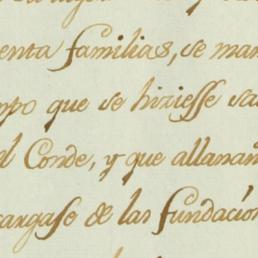 enta familias, se man
mpo que se hiziesse sa
el Conde, y que allanan
cargaso de las fundacion